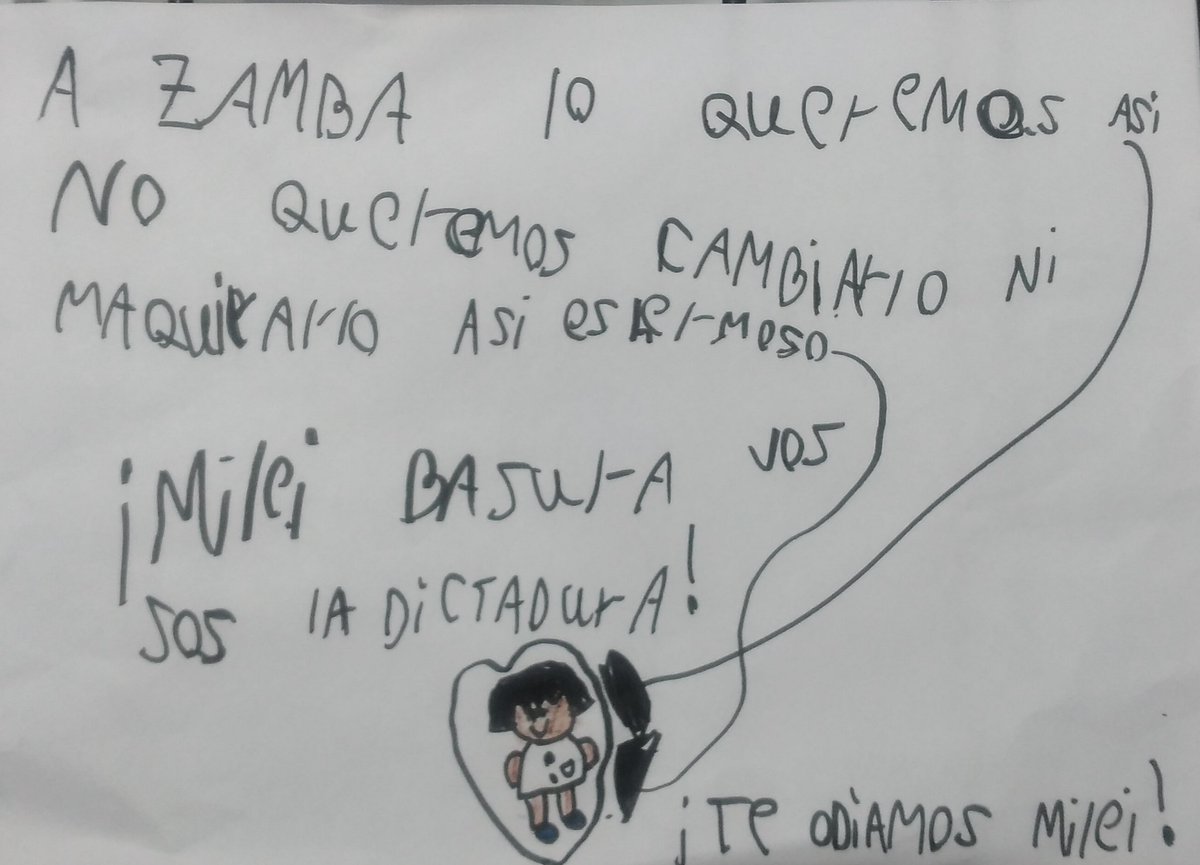 A ZAMBA lo QuereMos Asi
No QuereMos CAMBiArlo Ni
MAQuillArlo Asi es HerMoso
¡Milei BASurA vos
sos lA DiCTADurA!
¡Te oDiAMos Milei!